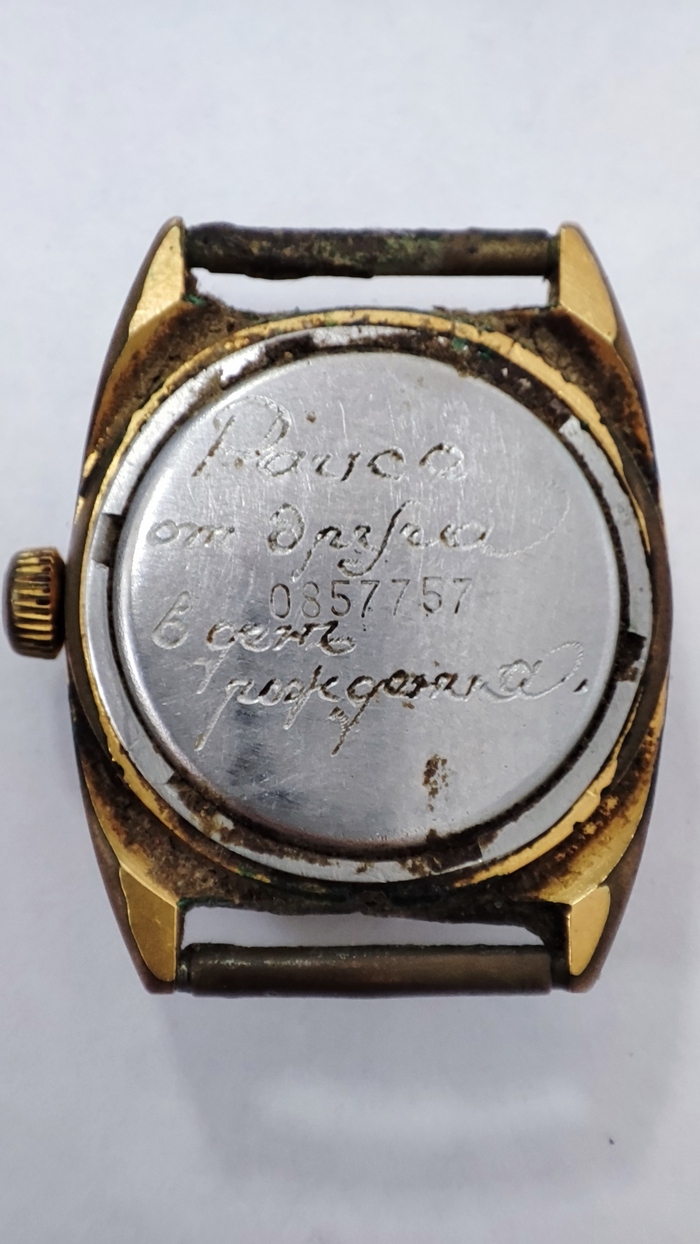 Раисе
от друга
0857757
в день
рождения.